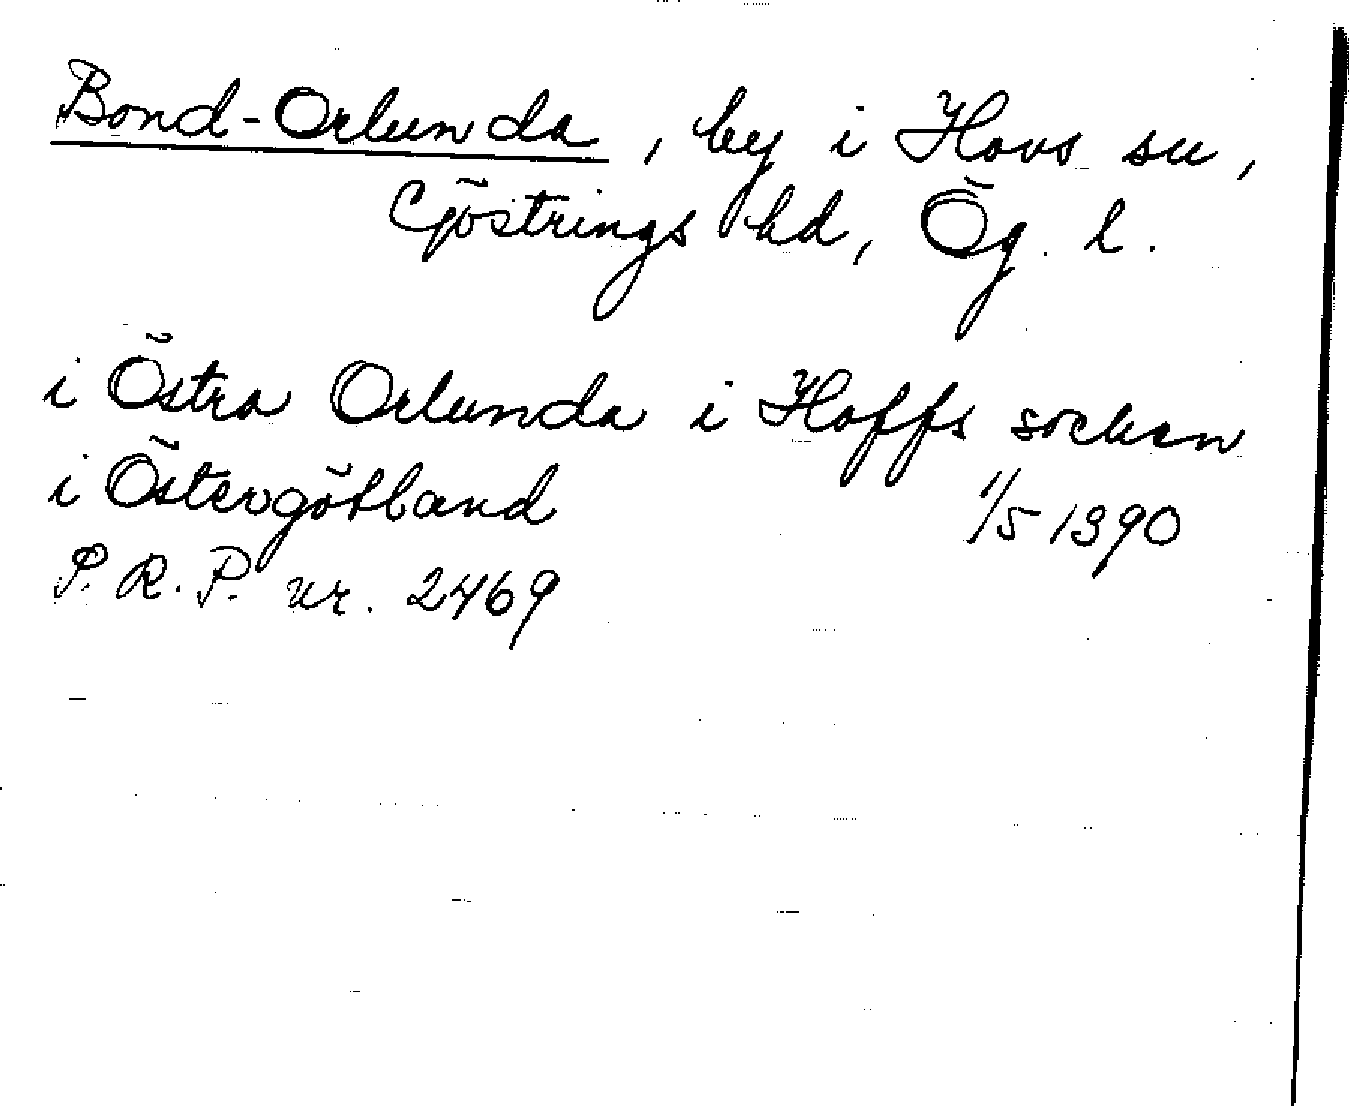 Bond-Orlunda, by i Hovs sn,
Göstrings hd, Ög. l.
i Östra Orlunda i Hoffs socken
i Östergötland 1/5 1390
P. R. P. nr. 2469